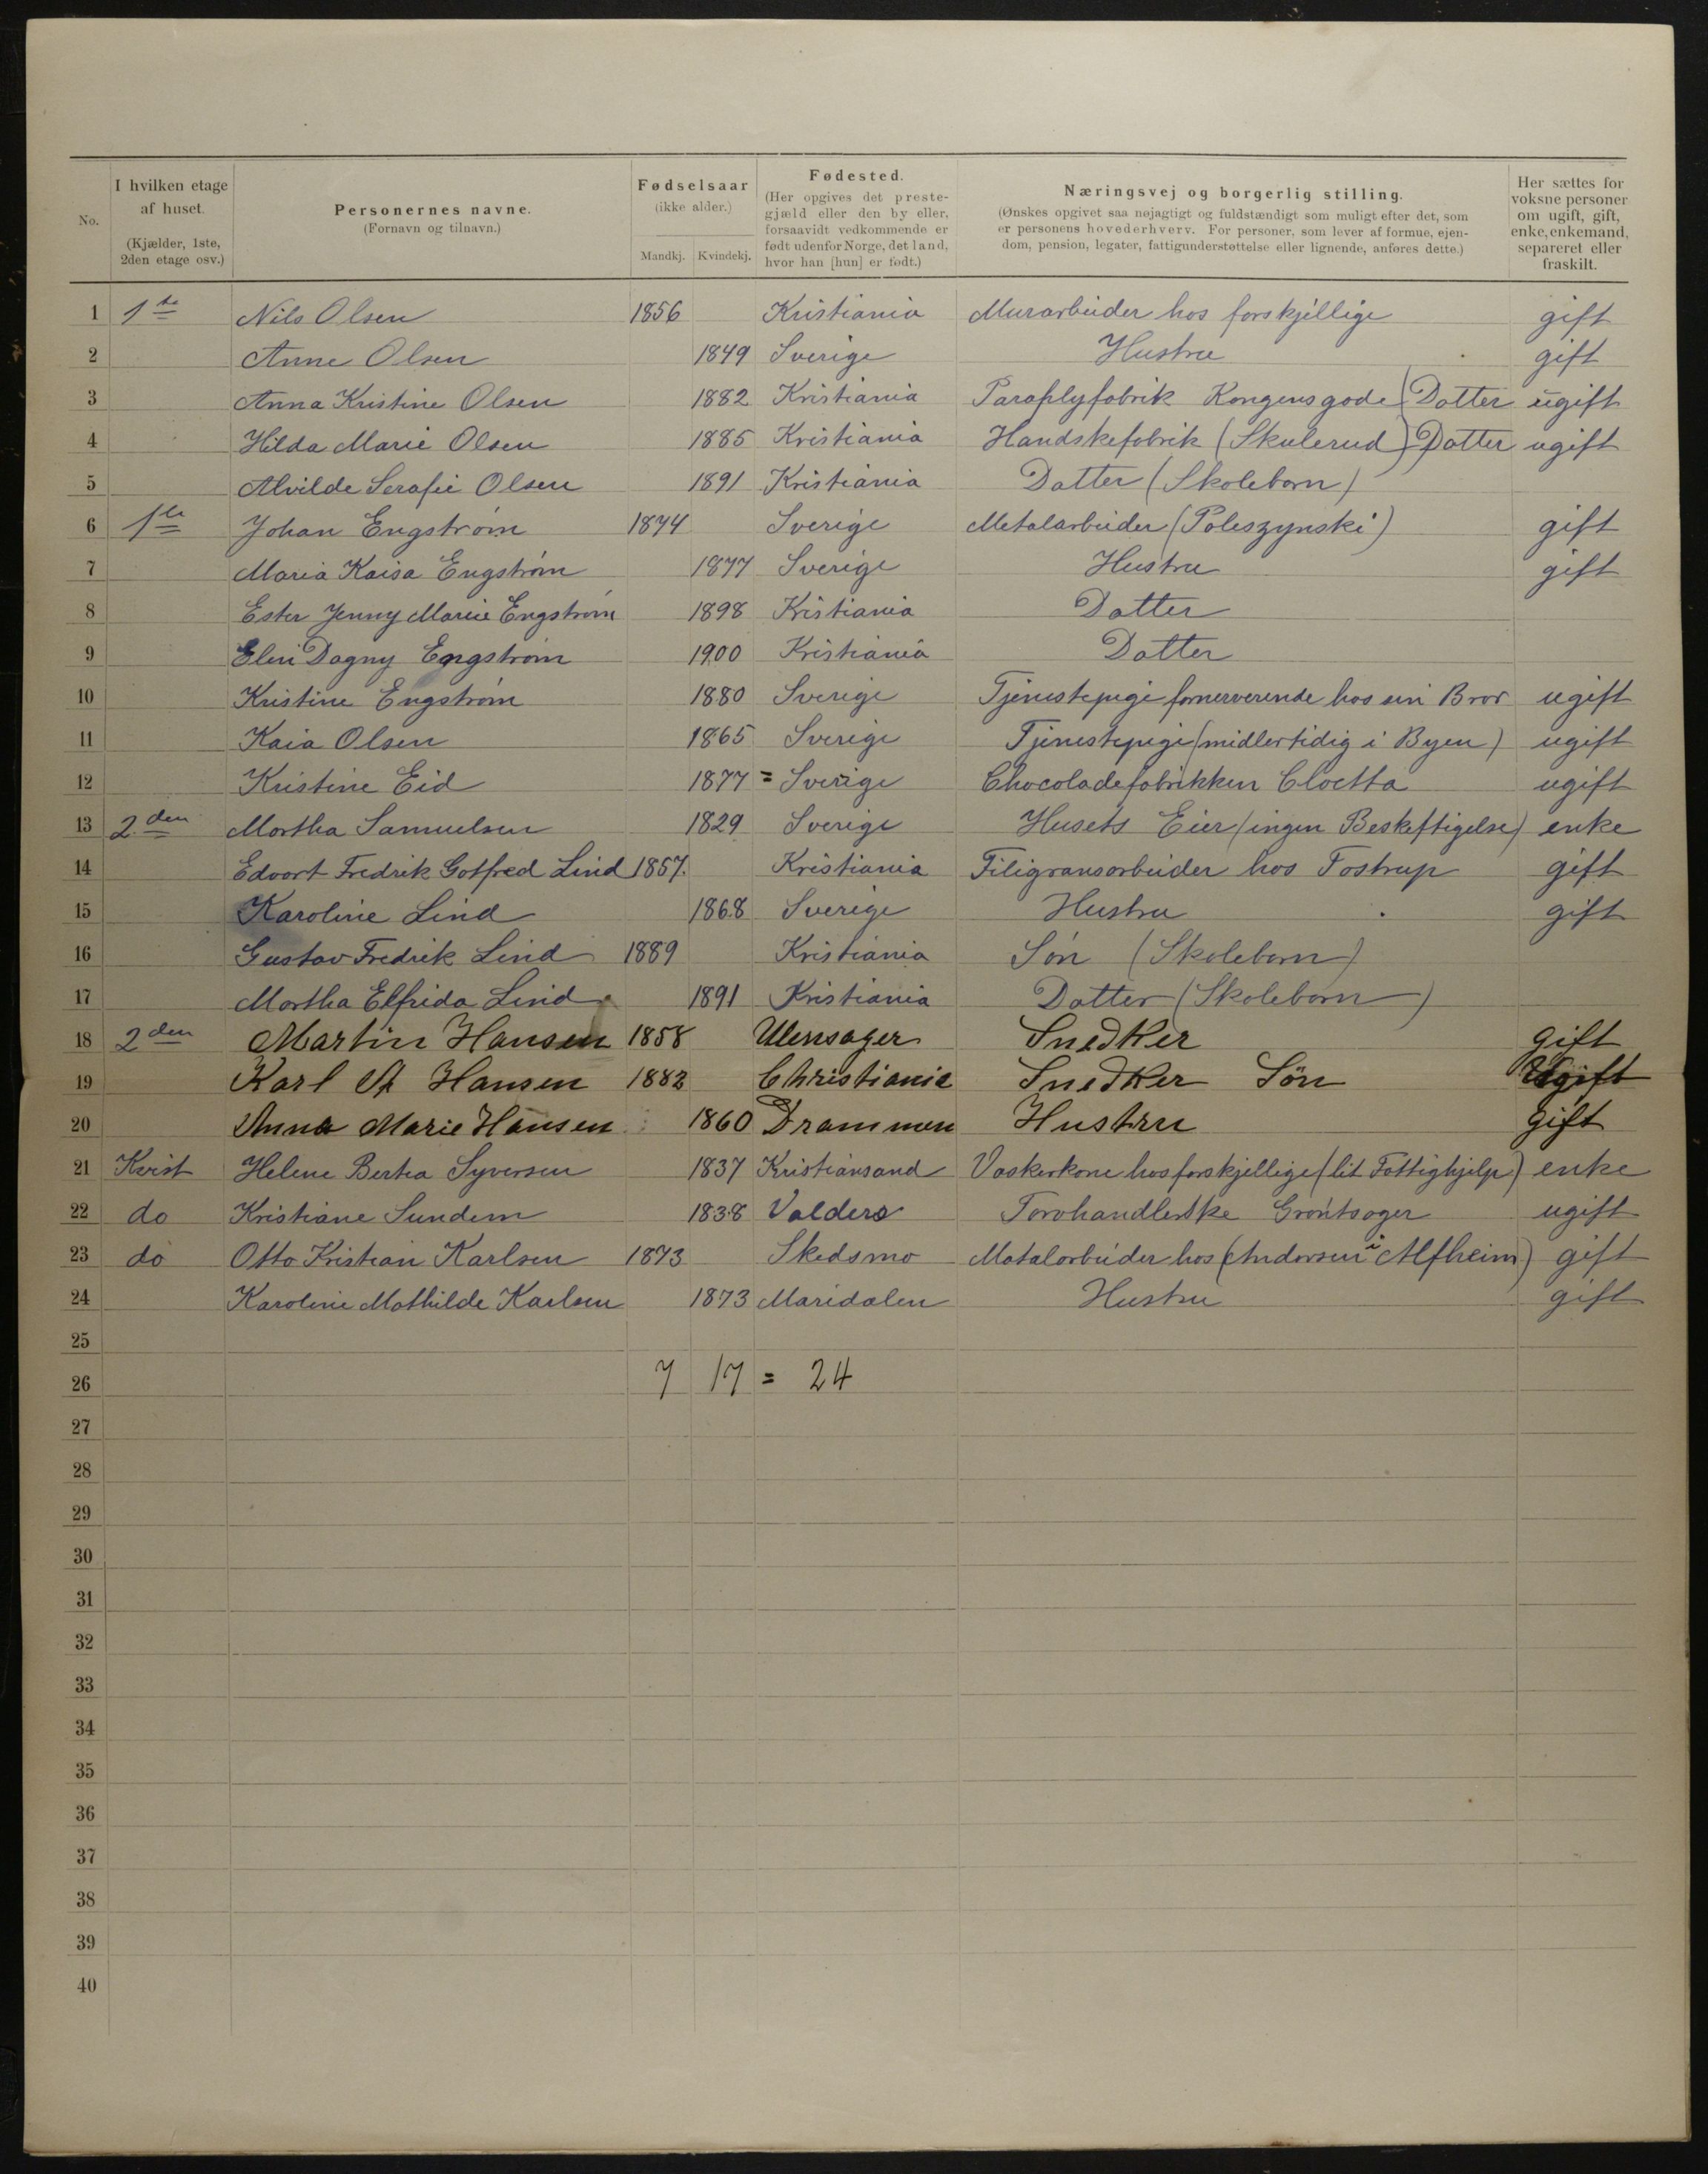 No.
I hvilken etage af huset. (Kjælder, 1ste, 2den etage osv.)
Personernes navne. (Fornavn og tilnavn.)
Fødselsaar (ikke alder.) Mandkj. Kvindekj.
Fødested. (Her opgives det prestegjæld eller den by eller, forsaavidt vedkommende er født udenfor Norge, det land, hvor han [hun] er født.)
Næringsvej og borgerlig stilling. (Ønskes opgivet saa nøjagtigt og fuldstændigt som muligt efter det, som er personens hovederhverv. For personer, som lever af formue, ejendom, pension, legater, fattigunderstøttelse eller lignende, anføres dette.)
Her sættes for voksne personer om ugift, gift, enke, enkemand, separeret eller fraskilt.
1 1ste Nils Olsen 1856 Kristiania Murarbeider hos forskjellige gift
2 Anne Olsen 1849 Sverige Hustru gift
3 Anna Kristine Olsen 1882 Kristiania Paraplyfabrik Kongensgade (Datter ugift
4 Hilda Marie Olsen 1885 Kristiania Handskefabrik (Skulerud) Datter ugift
5 Alvilde Serafie Olsen 1891 Kristiania Datter (Skolebarn)
6 1ste Johan Engstrøm 1874 Sverige Metalarbeider (Poleszynski) gift
7 Maria Kaisa Engstrøm 1877 Sverige Hustru gift
8 Ester Jenny Marie Engstrøm 1898 Kristiania Datter
9 Elin Dagny Engstrøm 1900 Kristiania Datter
10 Kristine Engstrøm 1880 Sverige Tjenestepige fornerverende hos sin Bror ugift
11 Kaia Olsen 1865 Sverige Tjenestepige (midlertidig i Byen) ugift
12 Kristine Eid 1877 = Sverige Chocoladefabrikken Cloetta ugift
13 2den Martha Samuelsen 1829 Sverige Husets Eier (ingen Beskeftigelse) enke
14 Edvart Fredrik Gotfred Lind 1857. Kristiania Filigransarbeider hos Tostrup gift
15 Karoline Lind 1868 Sverige Hustru gift
16 Gustav Fredrik Lind 1889 Kristiania Søn (Skolebarn)
17 Martha Elfrida Lind 1891 Kristiania Datter (Skolebarn)
18 2den Martin Hansen 1858 Ulensager Snedker gift
19 Karl A Hansen 1882 Christiania Snedker Sön Ugift
20 Anna Marie Hansen 1860 Drammen Hustru gift
21 Kvist Helene Bertea Syversen 1837 Kristiansand Vaskerkone hos forskjellige (lit Fattighjelp) enke
22 do Kristiane Sundem 1838 Valders Torvhandlerske Grøntsager ugift
23 do Otto Kristian Karlsen 1873 Skedsmo Matalarbeider hos (Andersen i Alfheim) gift
24 Karoline Mathilde Karlsen 1873 Maridalen Hustru gift
25
26 7 17 = 24
27
28
29
30
31
32
33
34
35
36
37
38
39
40